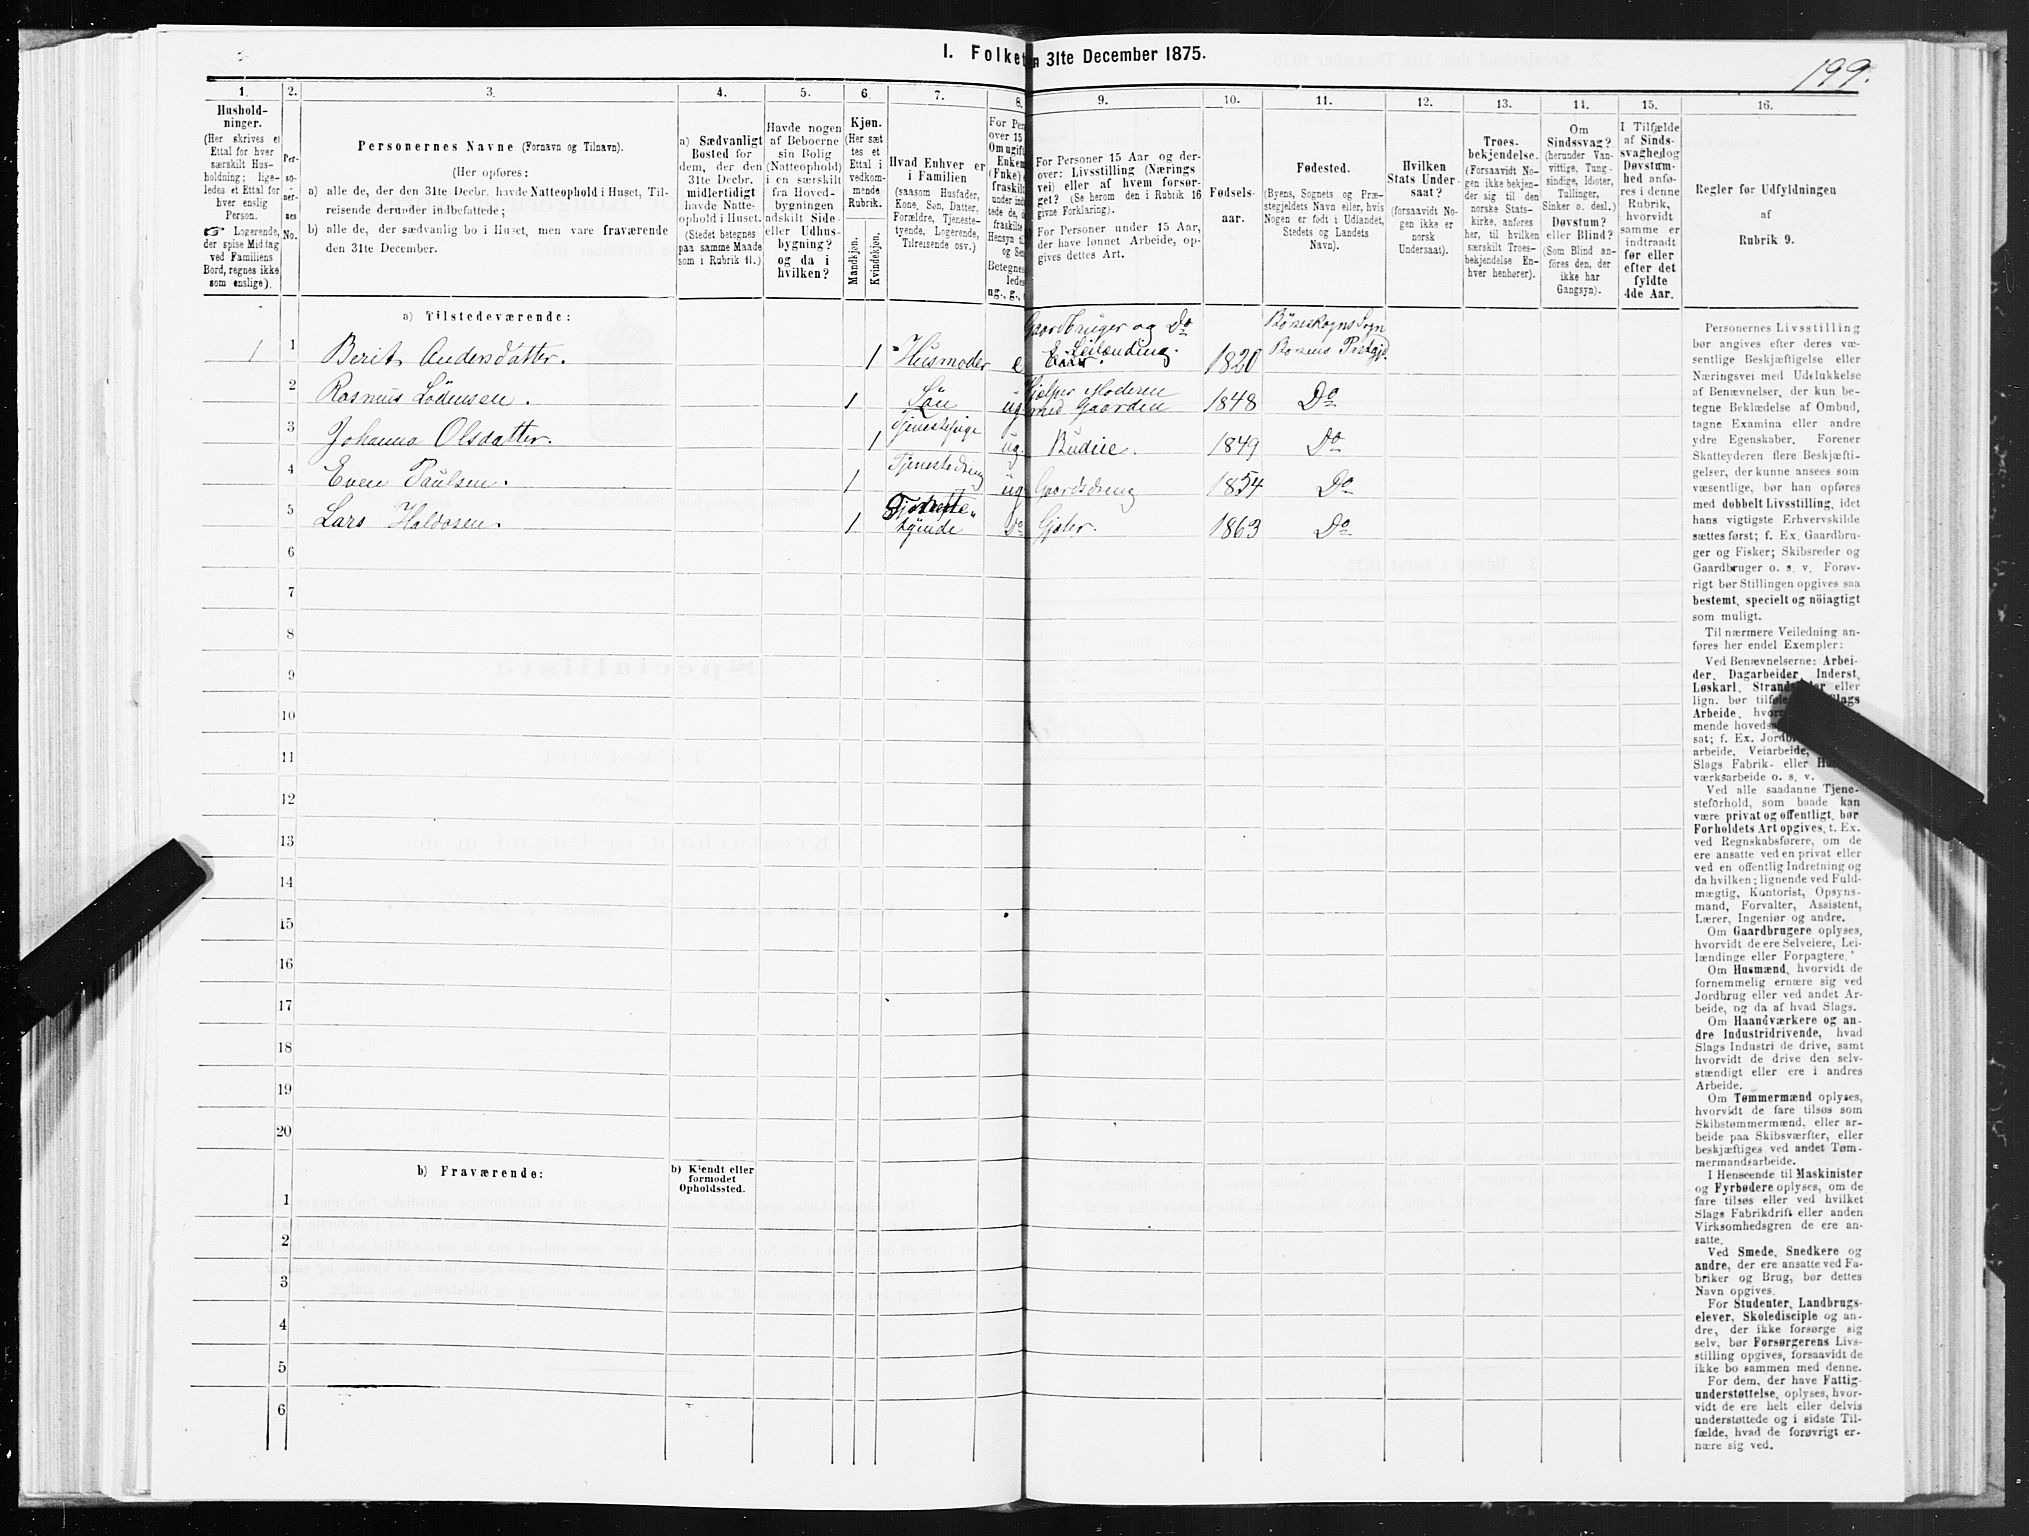 I. Folket n 31te December 1875.
199.
1.
Hushold-
ninger.
(Her skrives et
Ettal for hver
særskilt Hus-
holdning; lige-
ledes et Ettal for
hver enslig
Person.
☞ Logerende,
der spise Middag
ved Familiens
Bord, regnes ikke
som enslige).
2.
Per-
so-
ner-
nes
No.
3.
Personernes Navne (Fornavn og Tilnavn).
(Her opføres:
a) alle de, der den 31te Decbr. havde Natteophold i Huset, Til-
reisende derunder indbefattede;
b) alle de, der sædvanlig bo i Huset, men vare fraværende
den 31te December.
4.
a) Sædvanligt
Bosted for
dem, der den
31te Decbr.
midlertidigt
havde Natte-
ophold i Huset.
(Stedet betegnes
paa samme Maade
som i Rubrik 11.)
5.
Havde nogen
af Beboerne
sin Bolig
(Natteophold)
i en særskilt
fra Hoved-
bygningen
adskilt Side-
eller Udhus-
bygning?
og da i
hvilken?
6.
Kjøn.
(Her sæt
tes et
Ettal i
vedkom-
mende
Rubrik.
Mandkjøn.
Kvindekjøn.
7.
Hvad Enhver er
i Familien
(saasom Husfader,
Kone, Søn, Datter,
Forældre, Tjeneste-
tyende, Logerende,
Tilreisende osv.)
8.
For Per
over 15
Om ugift
Enkem
(Enke)
fraskilt
ug., g.,
9.
For Personer 15 Aar og der-
over: Livsstilling (Nærings
vei) eller af hvem forsør-
get? (Se herom den i Rubrik 16
givne Forklaring).
For Personer under 15 Aar,
der have lønnet Arbeide, op-
gives dettes Art.
10.
Fødsels-
aar.
11.
Fødested.
(Byens, Sognets og Præ-
stegjeldets Navn eller, hvis
Nogen er født i Udlandet,
Stedets og Landets
Navn).
12.
Hvilken
Stats Under-
saat?
(forsaavidt No-
gen ikke er
norsk
Undersaat).
13.
Troes-
bekjendelse.
(Forsaavidt No-
gen ikke bekjen-
der sig til den
norske Stats-
kirke, anføres
her, til hvilken
særskilt Troes-
bekjendelse En-
hver henhører).
14.
Om
Sindssvag?
(herunder Van-
vittige, Tung-
sindige, Idioter,
Tullinger,
Sinker o. desl.)
Døvstum?
eller Blind?
(Som Blind an-
føres den, der
ikke har
Gangsyn).
15.
I Tilfælde
af Sinds-
svaghed og
Døvstum-
hed anfø-
res i denne
Rubrik,
hvorvidt
samme er
indtraadt
før eller
efter det
fyldte
4de Aar.
16.
Regler for Udfyldningen
af
Rubrik 9.
a) Tilstedeværende:
1 1 Berit Andersdatter. 1 Husmoder e Gaardbruger og Do Leilænding. 1820 Bøneskogns Sogn
2 Rasmus Lødensen. 1 Søn ug Hjælper Moderen med Gaarden 1848 Do
3 Johanna Olsdatter. 1 Tjenestepige ug. Budeie. 1849 Do
4 Even Paulsen. 1 Tjenestedreng ug Gaardsdreng 1854 Do
5 Lars Haldosen. 1 Tjeneste- tyende Do Gjeter. 1863 Do
6
7
8
9
10
11
12
13
14
15
16
17
18
19
20
b) Fraværende:
b) Kjendt eller
formodet
Opholdssted.
1
2
3
4
5
6
Personernes Livsstilling
bør angives efter deres væ-
sentlige Beskjæftigelse eller
Næringsvei med Udelukkelse
af Benævnelser, der kun be-
tegne Beklædelse af Ombud,
tagne Examina eller andre
ydre Egenskaber. Forener
Skatteyderen flere Beskjæfti-
gelser, der kunne ansees som
væsentlige, bør han opføres
med dobbelt Livsstilling, idet
hans vigtigste Erhvervskilde
sættes først; f. Ex. Gaardbru-
ger og Fisker; Skibsreder og
Gaardbruger o. s. v. Forøv-
rigt bør Stillingen opgives saa
bestemt, specielt og nöiagtigt
som muligt.
Til nærmere Veiledning an-
føres her endel Exempler:
Ved Benævnelserne: Arbei-
der, Dagarbeider, Inderst,
Løskarl, Strandsidder eller
lign. bør tilføies Slags
Arbeide,
mende hoveds
sat; f. Ex. Jordbr
arbeide, Veiarbeide,
Slags Fabrik- eller Ha
værksarbeide o. s. v.
Ved alle saadanne Tjene-
steforhold, som baade kan
være privat og offentligt, bør
Forholdets Art opgives, t. Ex.
ved Regnskabsførere, om de
ere ansatte ved en privat eller
ved en offentlig Indretning og
da hvilken; lignende ved Fuld-
mægtig, Kontorist, Opsyns-
mand, Forvalter, Assistent,
Lærer, Ingeniør og andre.
Om Gaardbrugere oplyses,
hvorvidt de ere Selveiere, Lei-
lændinge eller Forpagtere.
Om Husmænd, hvorvidt de
fornemmelig ernære sig ved
Jordbrug eller ved andet Ar-
beide, og da af hvad Slags.
Om Haandværkere og an-
dre Industridrivende, hvad
Slags Industri de drive, samt
hvorvidt de drive den selv-
stændigt eller ere i andres
Arbeide.
Om Tømmermænd oplyses,
hvorvidt de fare tilsøs som
Skibstømmermænd, eller ar-
beide paa Skibsværfter, eller
beskjæftiges ved andet Tøm-
mermandsarbeide.
I Henseende til Maskinister
og Fyrbødere oplyses, om de
fare tilsøs eller ved hvilket
Slags Fabrikdrift eller anden
Virksomhedsgren de ere an-
satte.
Ved Smede, Snedkere og
andre, der ere ansatte ved Fa-
briker og Brug, bør dettes
Navn opgives.
For Studenter, Landbrugs-
elever, Skoledisciple og an-
dre, der ikke forsørge sig
selv, bør Forsørgerens Livs-
stilling opgives, forsaavidt de
ikke bo sammen med denne.
For dem, der have Fattig-
understøttelse, oplyses, hvor-
vidt de ere helt eller delvis
understøttede og i sidste Til-
fælde, hvad de forøvrigt er-
nære sig ved.